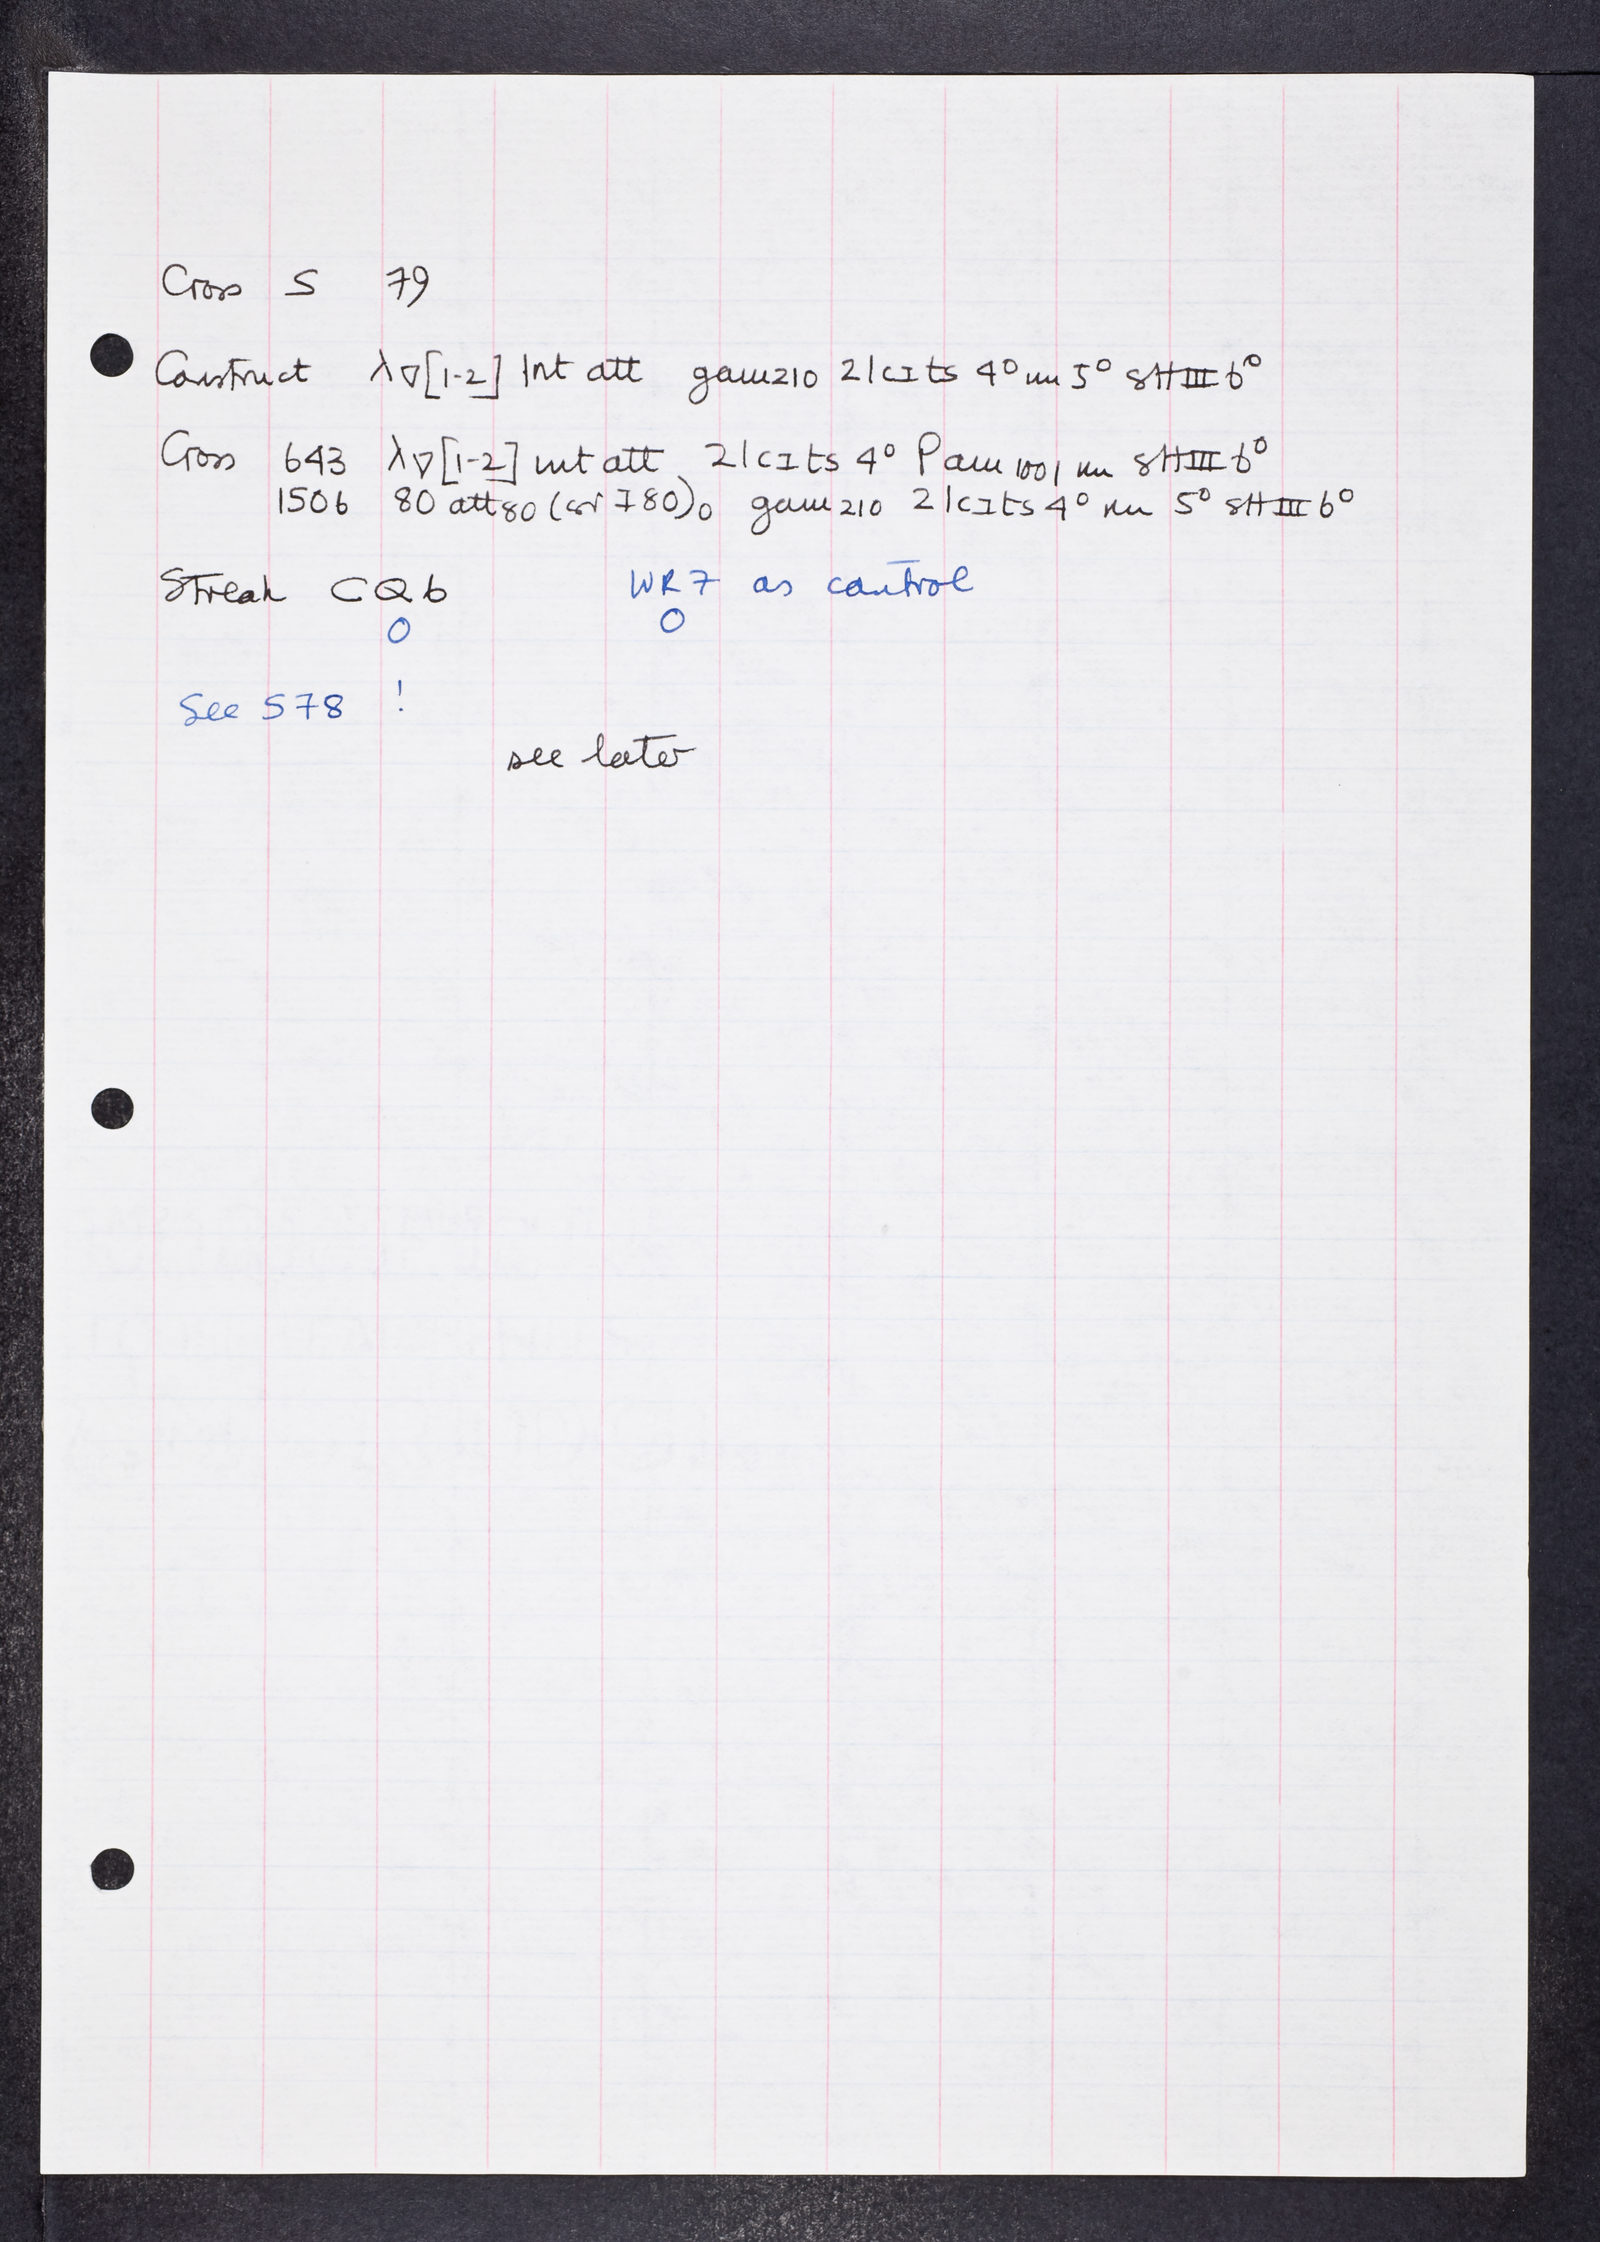 Cross S 79
Construct λ∇[1-2] Int att gam210 21cIts 4° nn 5° sHIII6°
Cross 643 λ∇[1-2] int att 21cIts 4° Pam1001 nn sHIII6°
1506 80 att80 (or I80)0 gam210 21cIts4° nn 5° sHIII6°
Streak CQ6 WR7 as control
0 0
See S78 !
see later